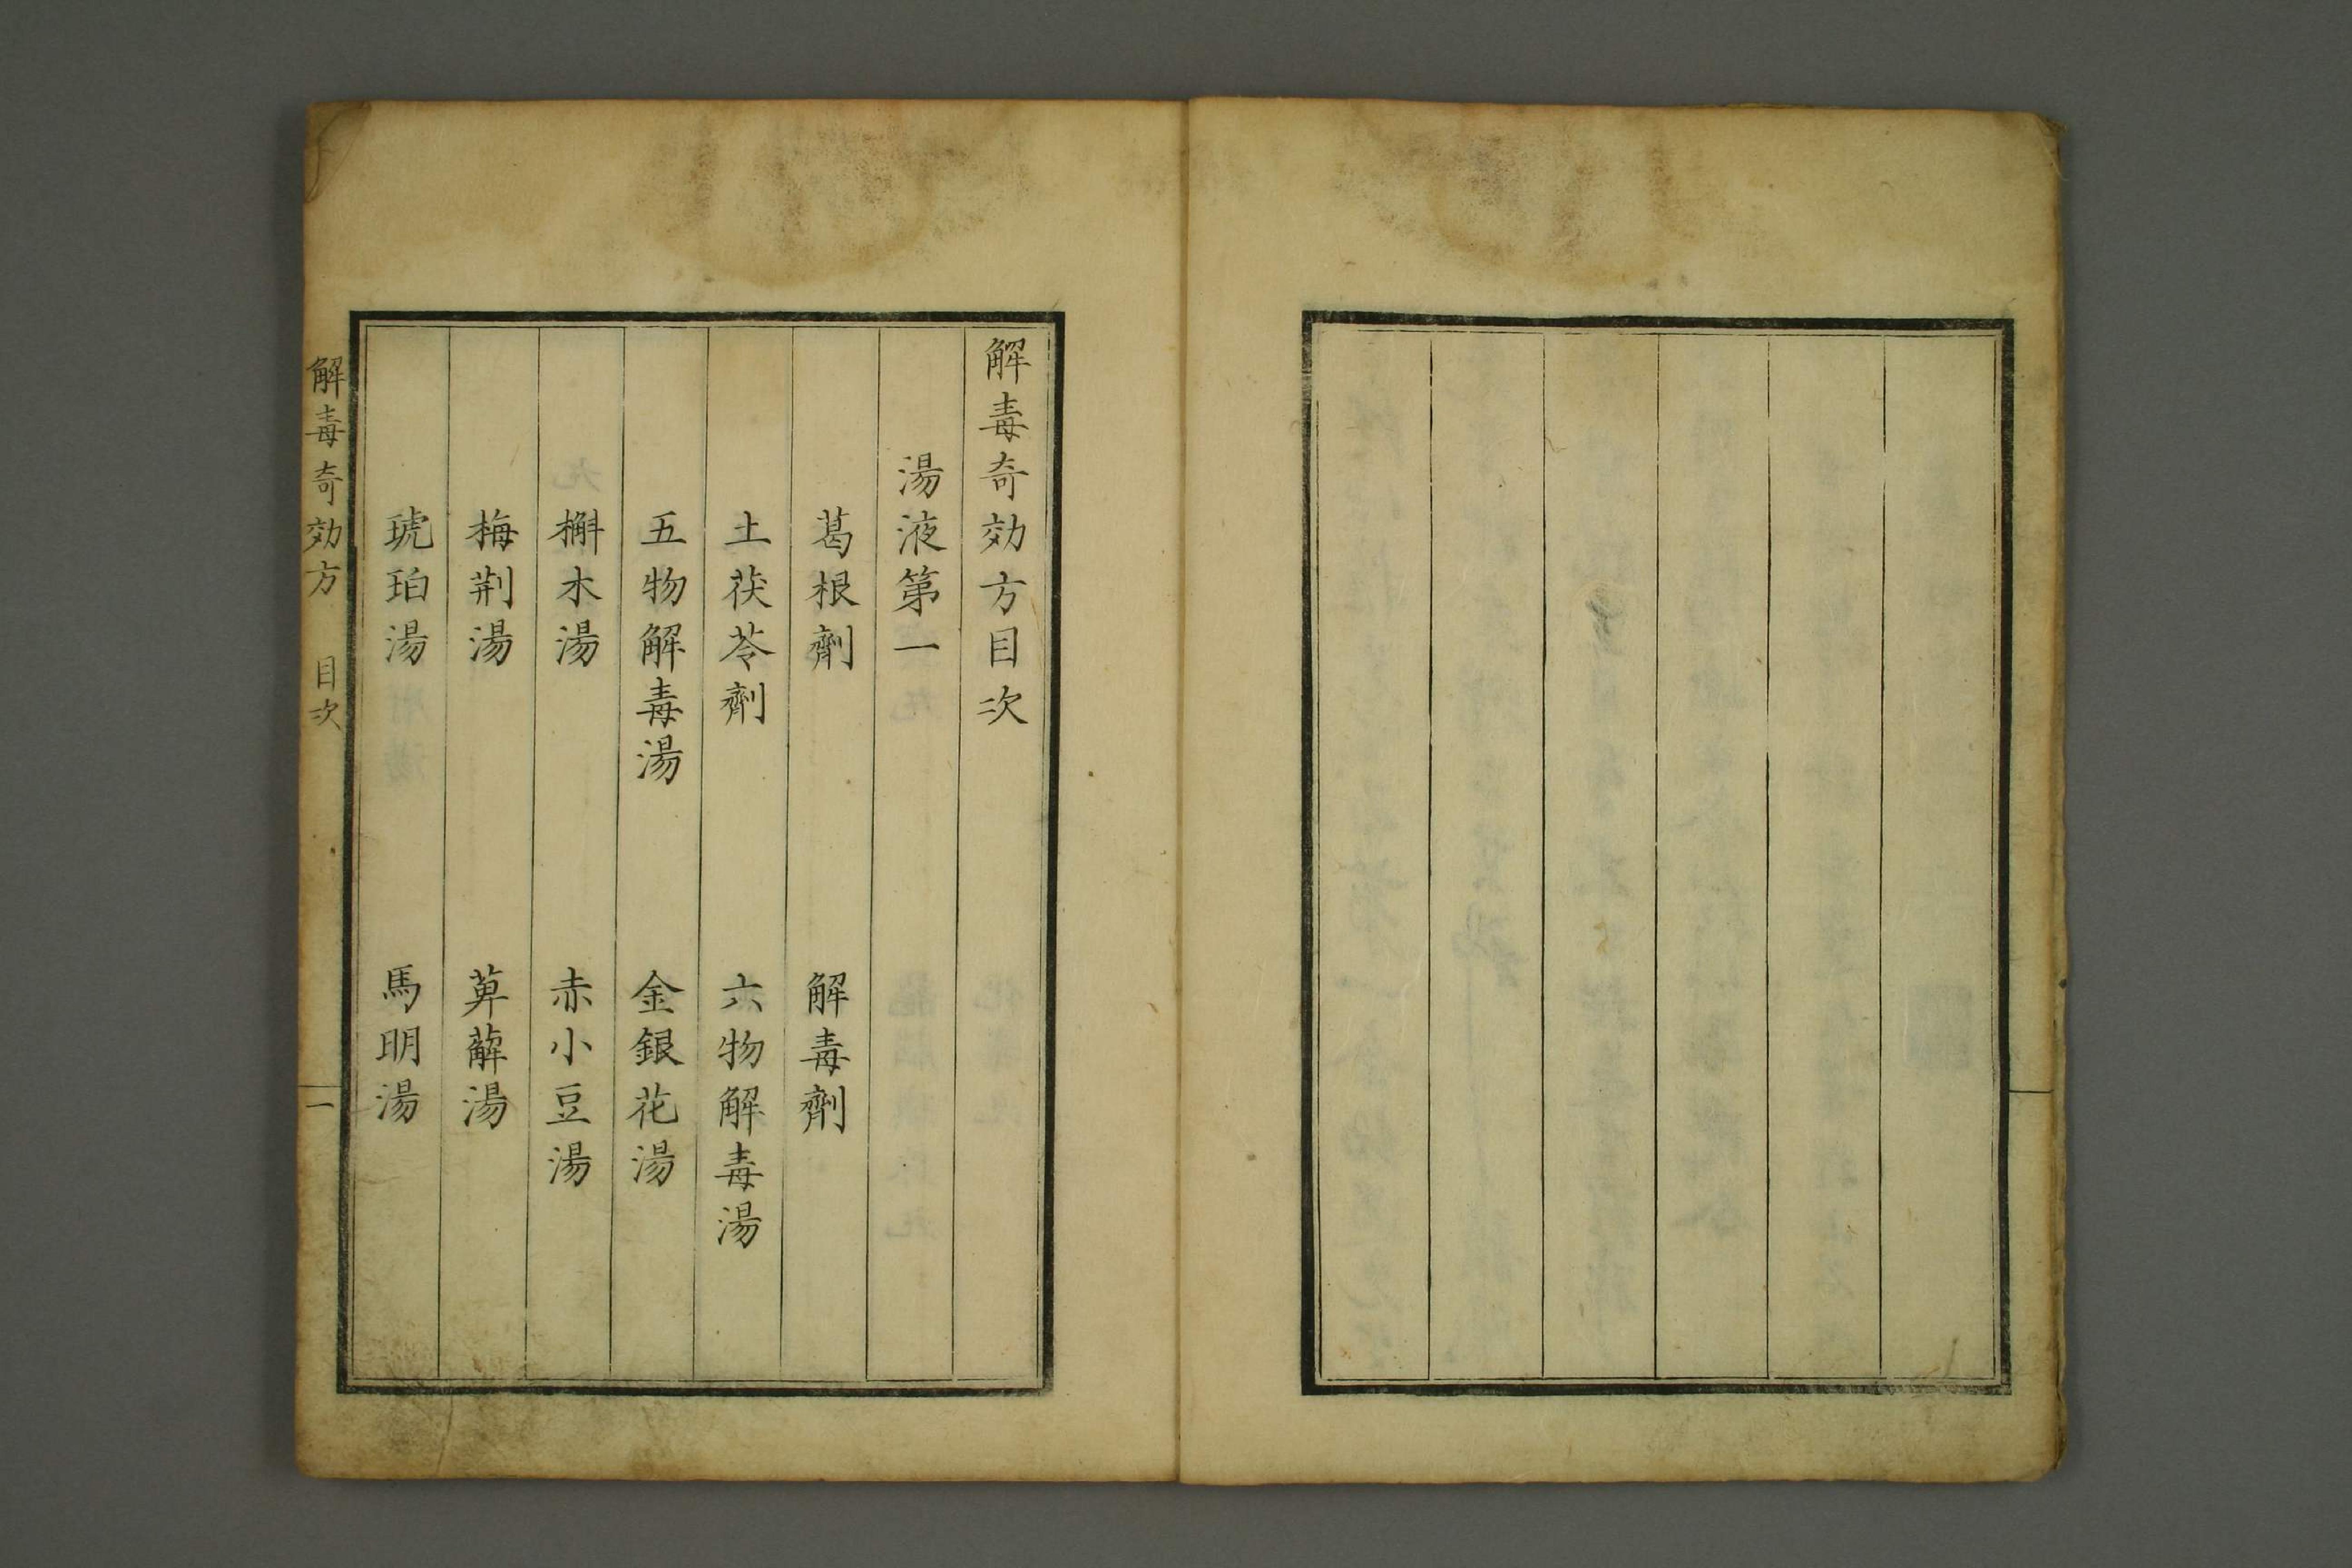 解毒奇効方目次
湯液第一
葛根劑　解毒劑
土茯苓劑　六物解毒湯
五物解毒湯　金銀花湯
槲木湯　赤小豆湯
梅荆湯　萆薢湯
琥珀湯　馬明湯
解毒奇効方　目次　一